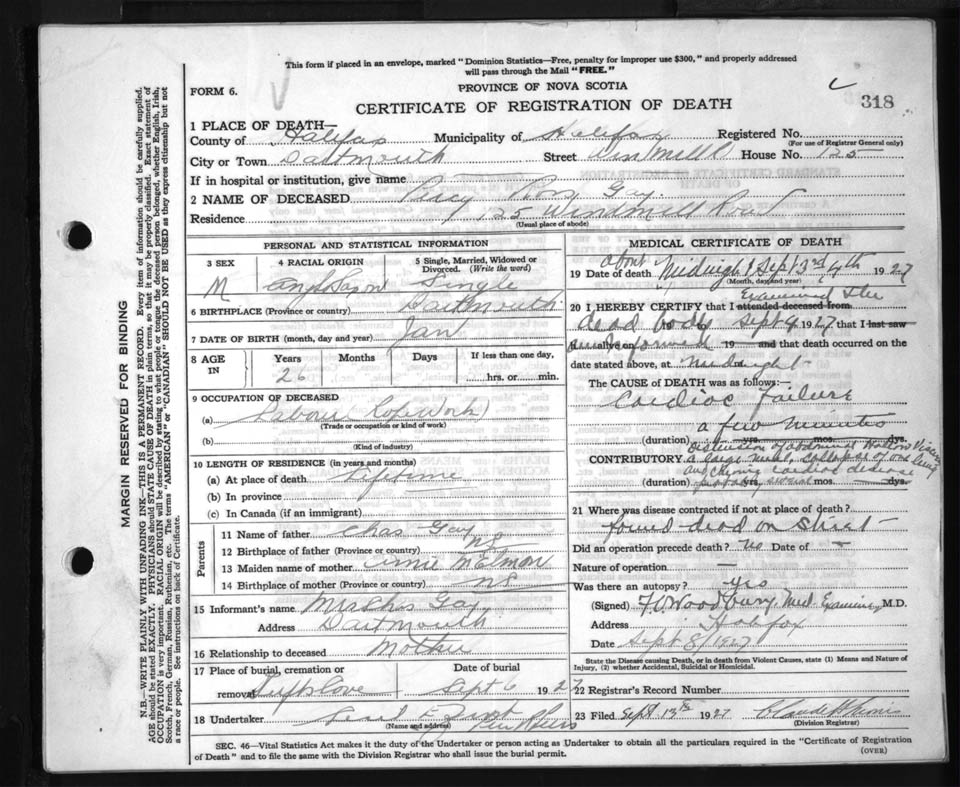 This form if placed in an envelope, marked "Dominion Statistics—Free, penalty for improper use $300," and properly addressed
will pass through the Mail "FREE."
FORM 6.
PROVINCE OF NOVA SCOTIA
CERTIFICATE OF REGISTRATION OF DEATH
318
1 PLACE OF DEATH—
County of Halifax Municipality of Halifax Registered No.
(For use of Registrar General only)
City or Town Dartmouth Street Windmill House No. 125
If in hospital or institution, give name
2 NAME OF DECEASED Percy Gay
Residence 125 Windmill Road
(Usual place of abode)
PERSONAL AND STATISTICAL INFORMATION
3 SEX 4 RACIAL ORIGIN 5 Single, Married, Widowed or
Divorced. (Write the word)
M Anglo Saxon Single
6 BIRTHPLACE (Province or country) Dartmouth
7 DATE OF BIRTH (month, day and year) Jan
8 AGE IN Years Months Days If less than one day,
26 hrs. or min.
9 OCCUPATION OF DECEASED
(a) Labourer Ropework
(Trade or occupation or kind of work)
(b)
(Kind of industry)
10 LENGTH OF RESIDENCE (in years and months)
(a) At place of death Lifetime
(b) In province
(c) In Canada (if an immigrant)
Parents
11 Name of father Chas Gay
12 Birthplace of father (Province or country) NS
13 Maiden name of mother McElmon
14 Birthplace of mother (Province or country) NS
15 Informant's name Mrs Chas Gay
Address Dartmouth
16 Relationship to deceased Mother
17 Place of burial, cremation or Date of burial
removal Tufts Cove Sept 6 1927
18 Undertaker
(Name and address)
MEDICAL CERTIFICATE OF DEATH
19 Date of death about Midnight Sept 3rd 4th 1927
(Month, day and year)
20 I HEREBY CERTIFY that I attended deceased from Examined the
dead body Sept 4 1927 that I last saw
h alive on 19 and that death occurred on the
date stated above, at midnight m.
The CAUSE of DEATH was as follows:—
Cardiac Failure
a few minutes
(duration) yrs. mos. dys.
CONTRIBUTORY
a large meal, collapse of one lung
and chronic cardiac disease
(duration) probably several yrs. mos. dys.
21 Where was disease contracted if not at place of death?
found dead on street —
Did an operation precede death? No Date of —
Nature of operation —
Was there an autopsy? yes
(Signed) Woodbury, Med. Examiner, M.D.
Address Halifax
Date Sept 8/1927
State the Disease causing Death, or in death from Violent Causes, state (1) Means and Nature of
Injury, (2) whether Accidental, Suicidal or Homicidal.
22 Registrar's Record Number
23 Filed Sept 13th 1927
(Division Registrar)
SEC. 46—Vital Statistics Act makes it the duty of the Undertaker or person acting as Undertaker to obtain all the particulars required in the "Certificate of Registration
of Death" and to file the same with the Division Registrar who shall issue the burial permit.
(OVER)
MARGIN RESERVED FOR BINDING
N.B.—WRITE PLAINLY WITH UNFADING INK—THIS IS A PERMANENT RECORD. Every item of information should be carefully supplied.
AGE should be stated EXACTLY. PHYSICIANS should STATE CAUSE OF DEATH in plain terms, so that it may be properly classified. Exact statement of
OCCUPATION is very important. RACIAL ORIGIN will be described by stating to what people or tongue the deceased person belonged, whether English, Irish,
Scotch, French, German, Russian, Ruthenian, etc. The terms "AMERICAN" or "CANADIAN" SHOULD NOT BE USED as they express citizenship but not
a race or people. See instructions on back of Certificate.